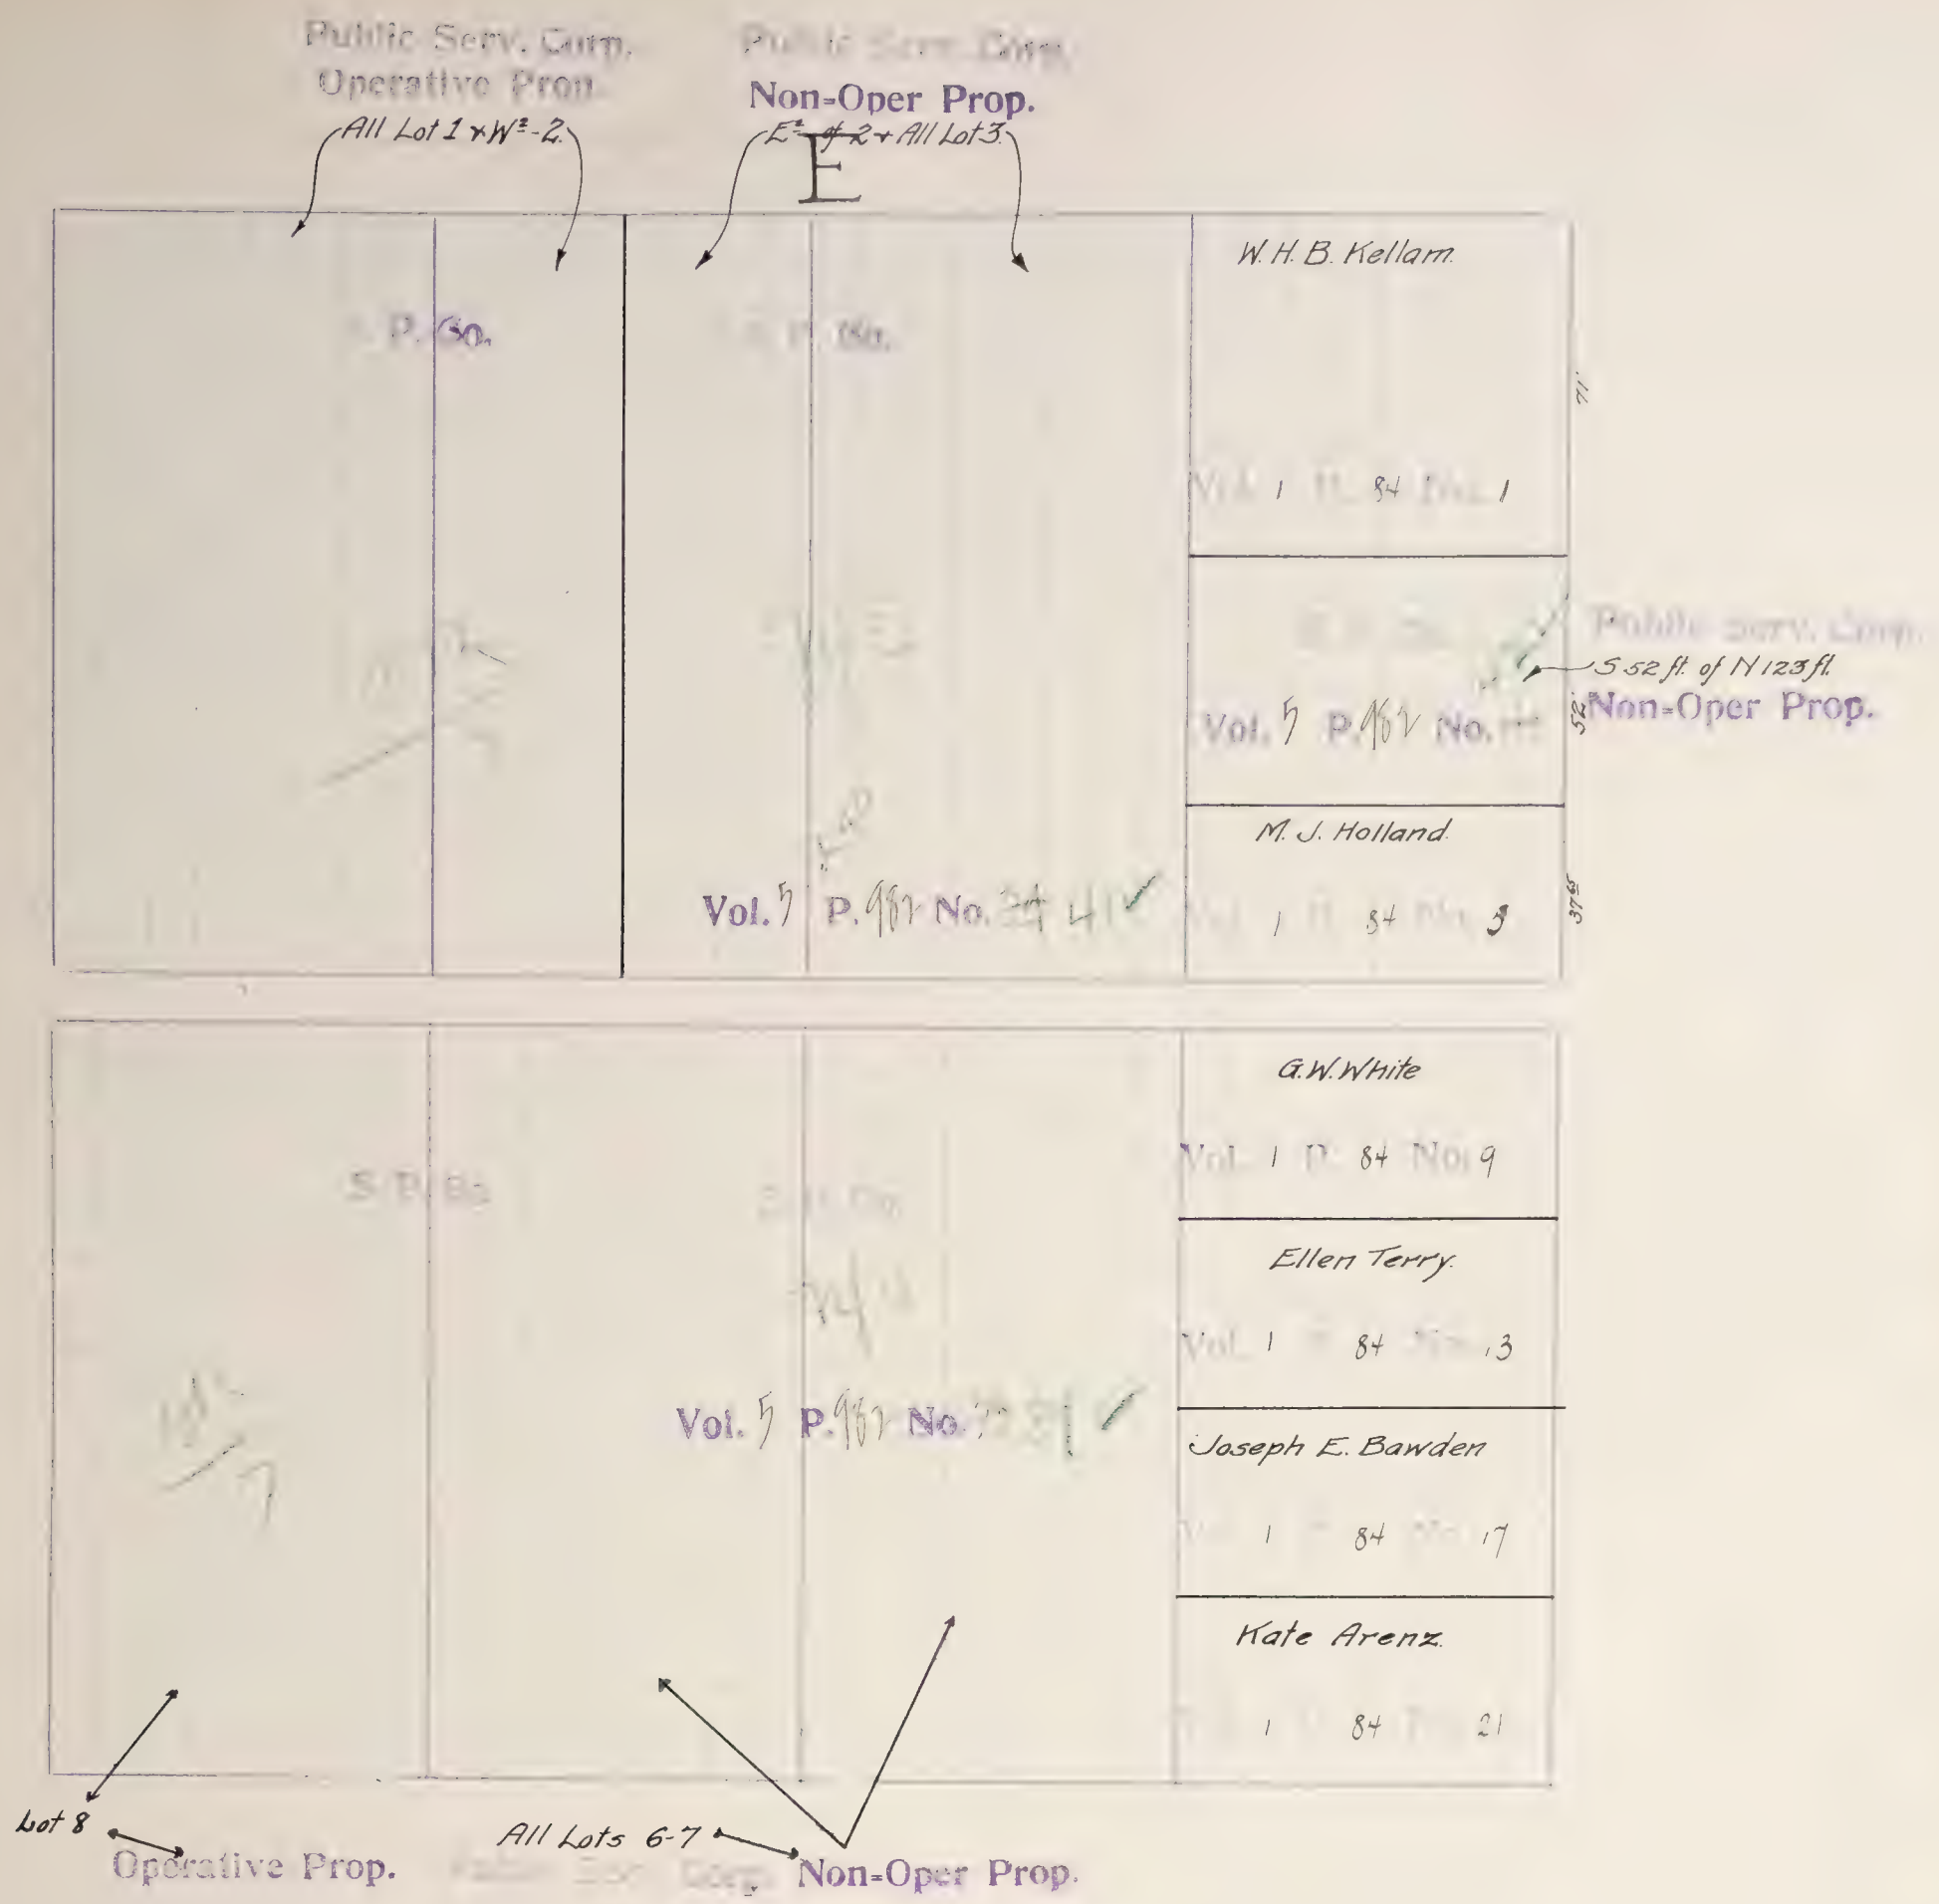 Public Serv. Corp.
Operative Prop.
All Lot 1 & W½-2.
Public Serv. Corp.
Non-Oper Prop.
E½ of 2 & All Lot 3.
E
P. Co.
P. Co.
W. H. B. Kellam.
71'
Vol. 1 P. 84 No. 1
Public Serv. Corp.
S 52 ft. of N 123 ft.
Non-Oper Prop.
Vol. 5 P. 982 No.
52'
M. J. Holland.
Vol. 5 P. 982 No. 41
Vol. 1 P. 84 No. 5
37⁶⁵
G. W. White
Vol. 1 P. 84 No. 9
S. P. Co.
S. P. Co.
Ellen Terry.
Vol. 1 P. 84 No. 13
Vol. 5 P. 982 No.
Joseph E. Bawden
Vol. 1 P. 84 No. 17
Kate Arenz.
1 84 21
Lot 8
Operative Prop.
All Lots 6-7
Corp.
Non-Oper Prop.